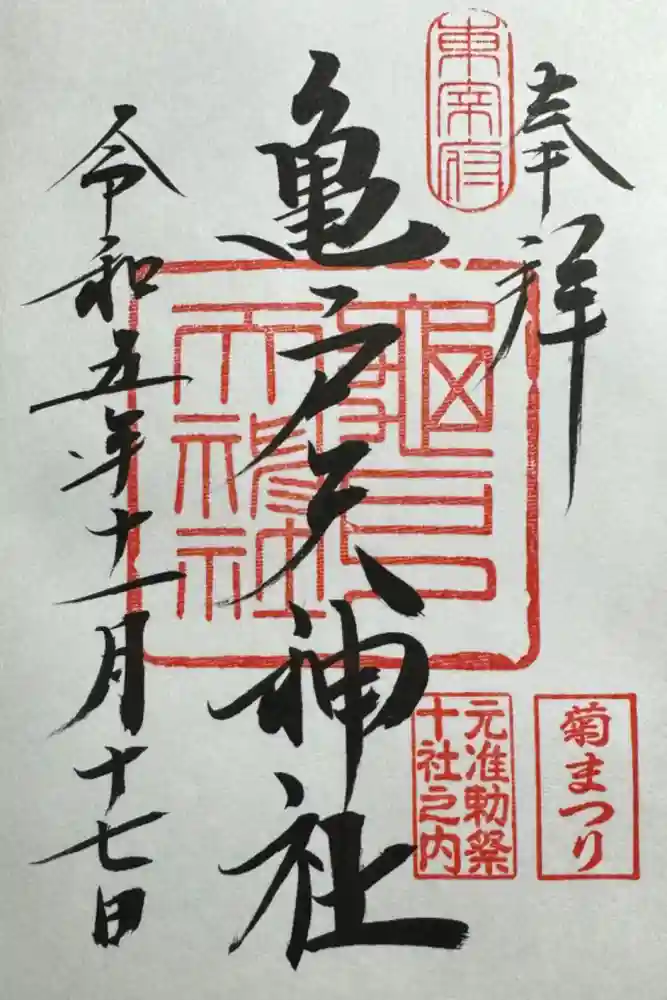 奉拝
東宰府
亀戸天神社
龜戸
天神社
元准勅祭
十社之内
菊まつり
令和五年十一月十七日